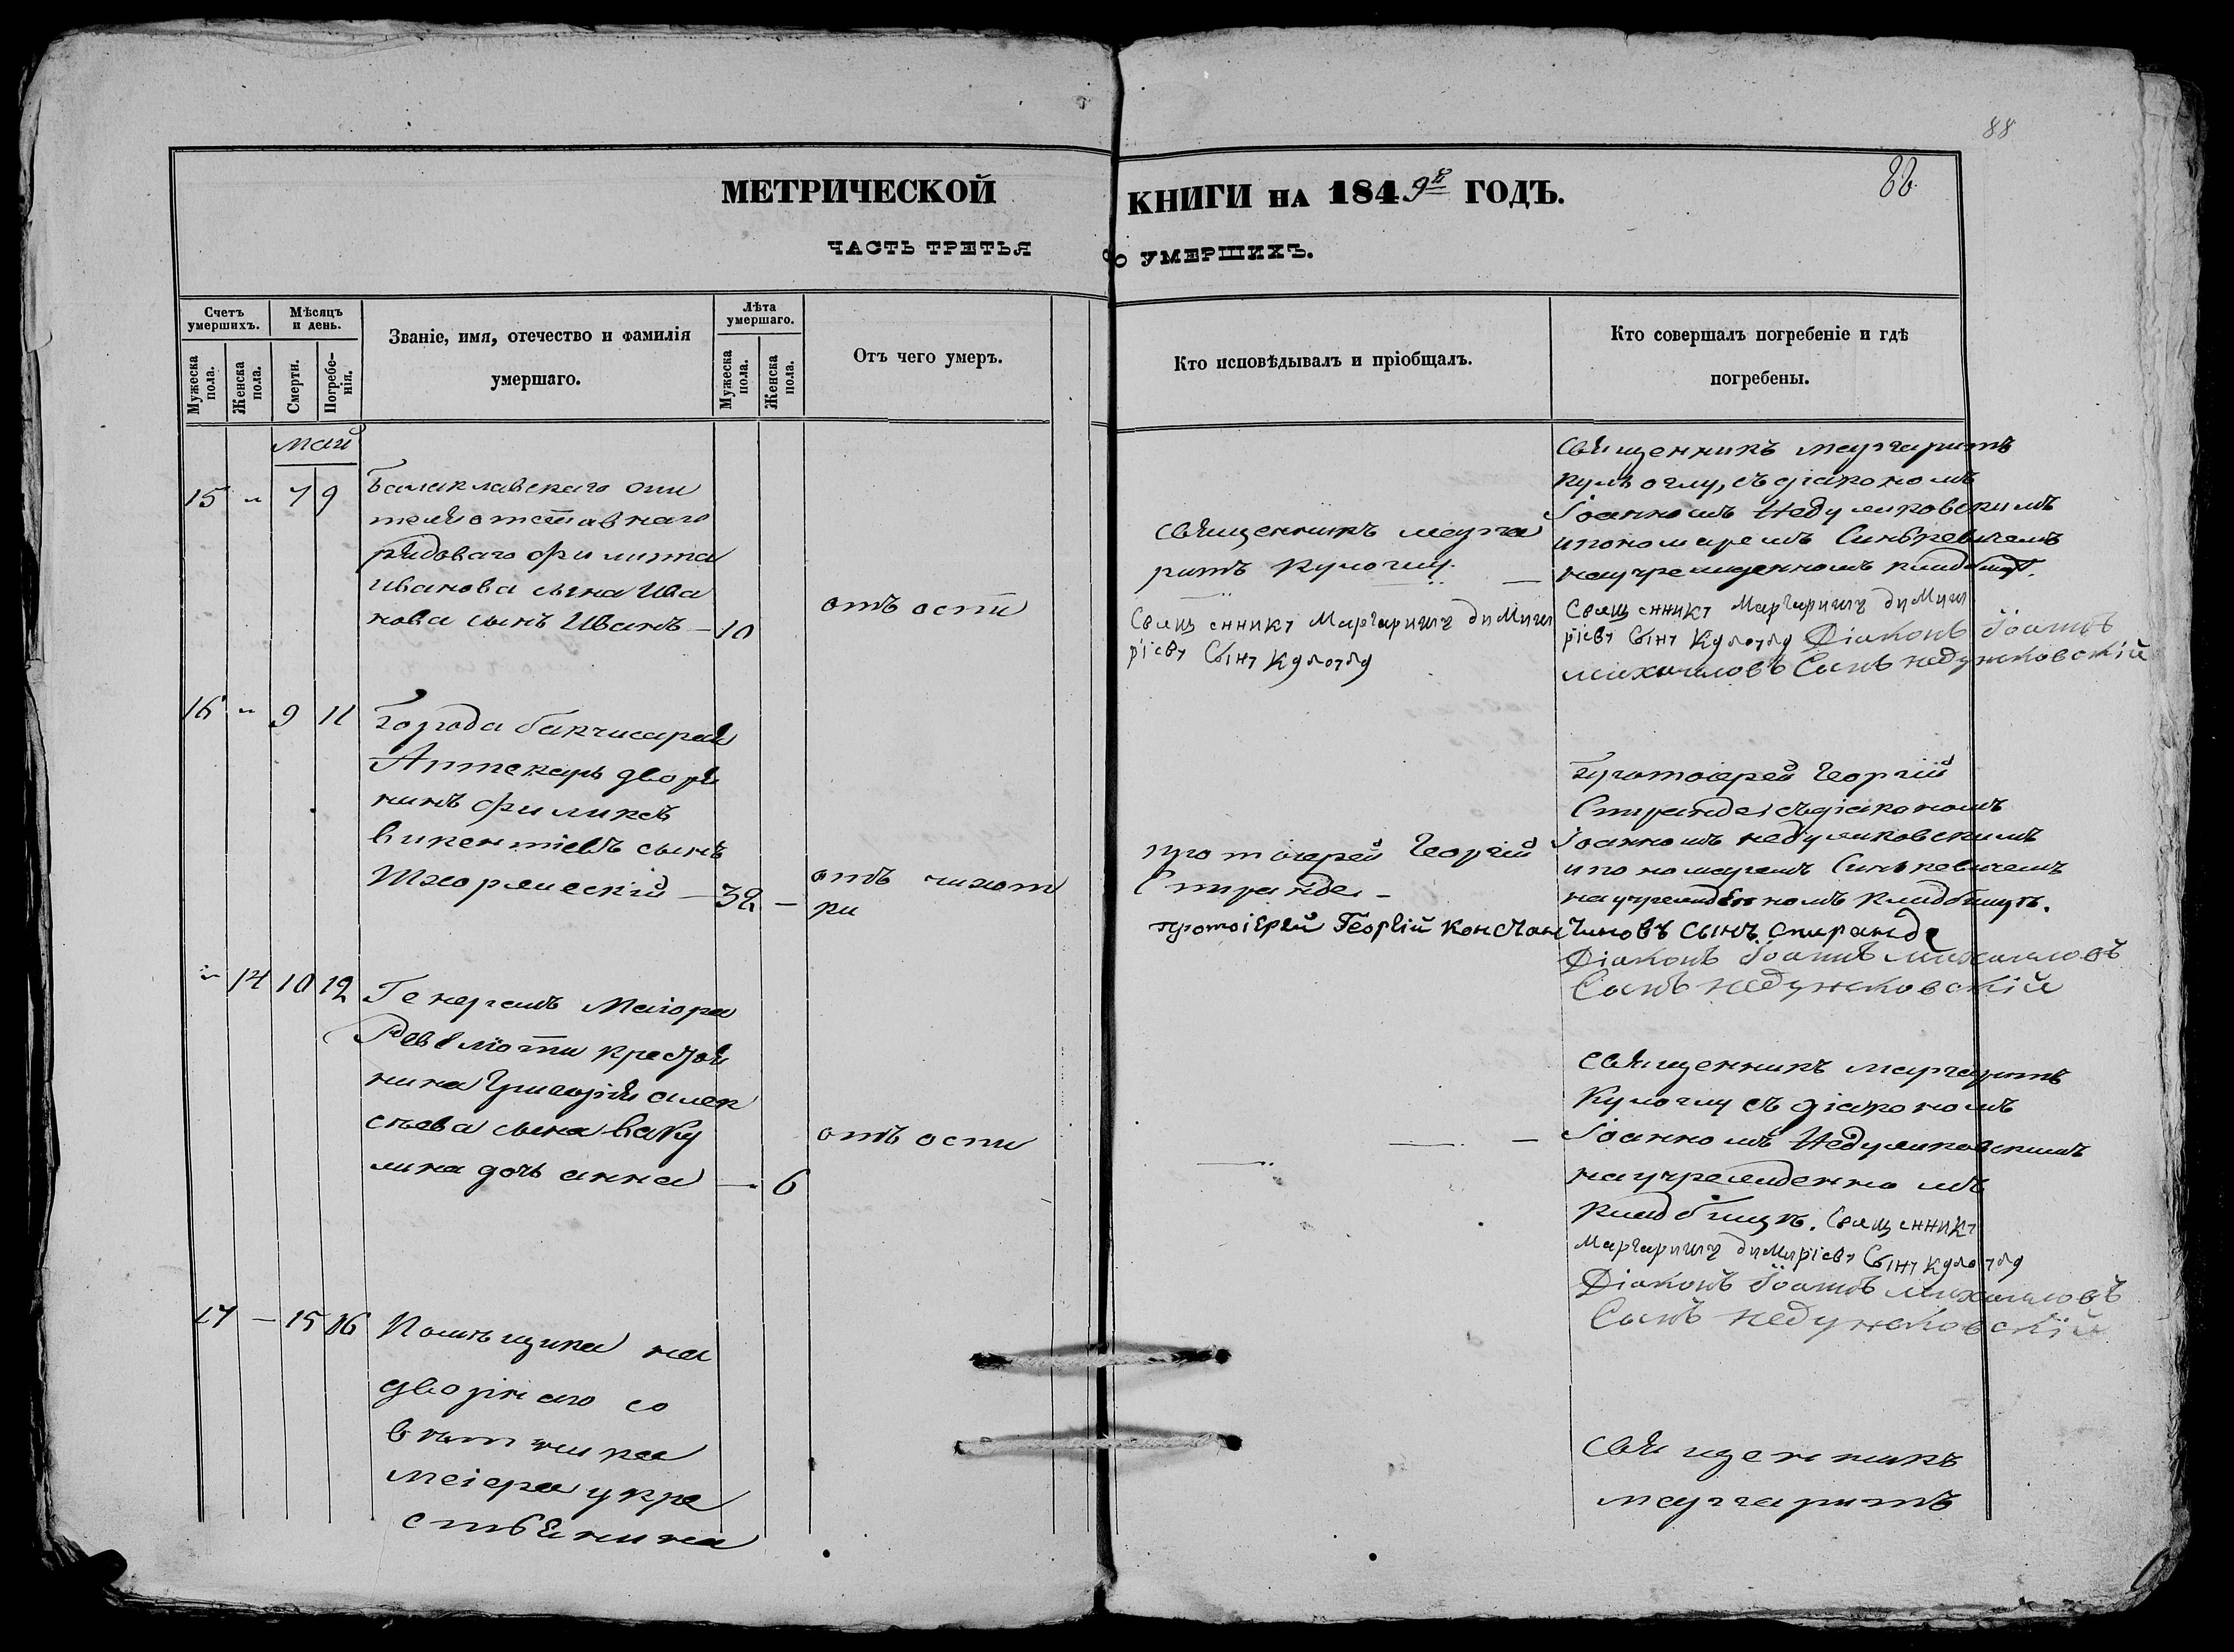 88
88
МЕТРИЧЕСКОЙ КНИГИ НА 1849й ГОДЪ.
ЧАСТЬ ТРЕТЬЯ О УМЕРШИХЪ.
Счетъ умершихъ.
Мужеска пола.
Женска пола.
Мѣсяцъ и день.
Смерти.
Погребе-нія.
Званіе, имя, отечество и фамилія
умершаго.
Лѣта умершаго.
Мужеска пола.
Женска пола.
Отъ чего умеръ.
Кто исповѣдывалъ и пріобщалъ.
Кто совершалъ погребеніе и гдѣ
погребены.
май
15 " 7 9
Балаклавскаго
отставнаго
рядоваго филипа
иванова сына Ива
нова сынъ Иванъ — 10
отъ оспи
священникъ марга
ритъ Кулоглу. —
Священникъ Маргаритъ димит
ріевъ Сынъ Кулоглу
священникъ маргаритъ
кулъ оглу, съ діакономъ
Іоанномъ Недумковскимъ
и пономаремъ Синкевичемъ
на учрежденномъ кладбищѣ.
Священникъ Маргаритъ димит
ріевъ Сынъ Кулоглу Діаконъ Іоаннъ
михаиловъ Сынъ недумковскій
16 " 9 11
Города бакчисарая
Аптекарь дворя
нинъ филиксъ
викентіевъ сынъ
— 32 —
отъ чихот
ки
протоіерей Георгій
Спиранде —
протоіерей Георгій Константиновъ сынъ Спиранде
Протоіерей Георгій
Спиранде съ діакономъ
Іоанномъ недумковскимъ
и пономаремъ Синкевичемъ
на учрежденномъ кладбищѣ.
Діаконъ Іоаннъ михаиловъ
Сынъ недумковскій
" 14 10 12
Генералъ Маіора
Ревеліоти крестья
нина Григорія алек
сѣева сына Ваку
лина дочь анна — 6
отъ оспи
священникъ маргаритъ
Кулоглу съ діакономъ
Іоанномъ Недумковскимъ
на учрежденномъ
кладбищѣ. Священникъ
Маргаритъ димитріевъ Сынъ Кулоглу
Діаконъ Іоаннъ михаиловъ
Сынъ недумковскій
17 — 15 16
Помѣщика на
дворнаго со
вѣтника
меіера у кре
стьянина
священникъ
маргаритъ